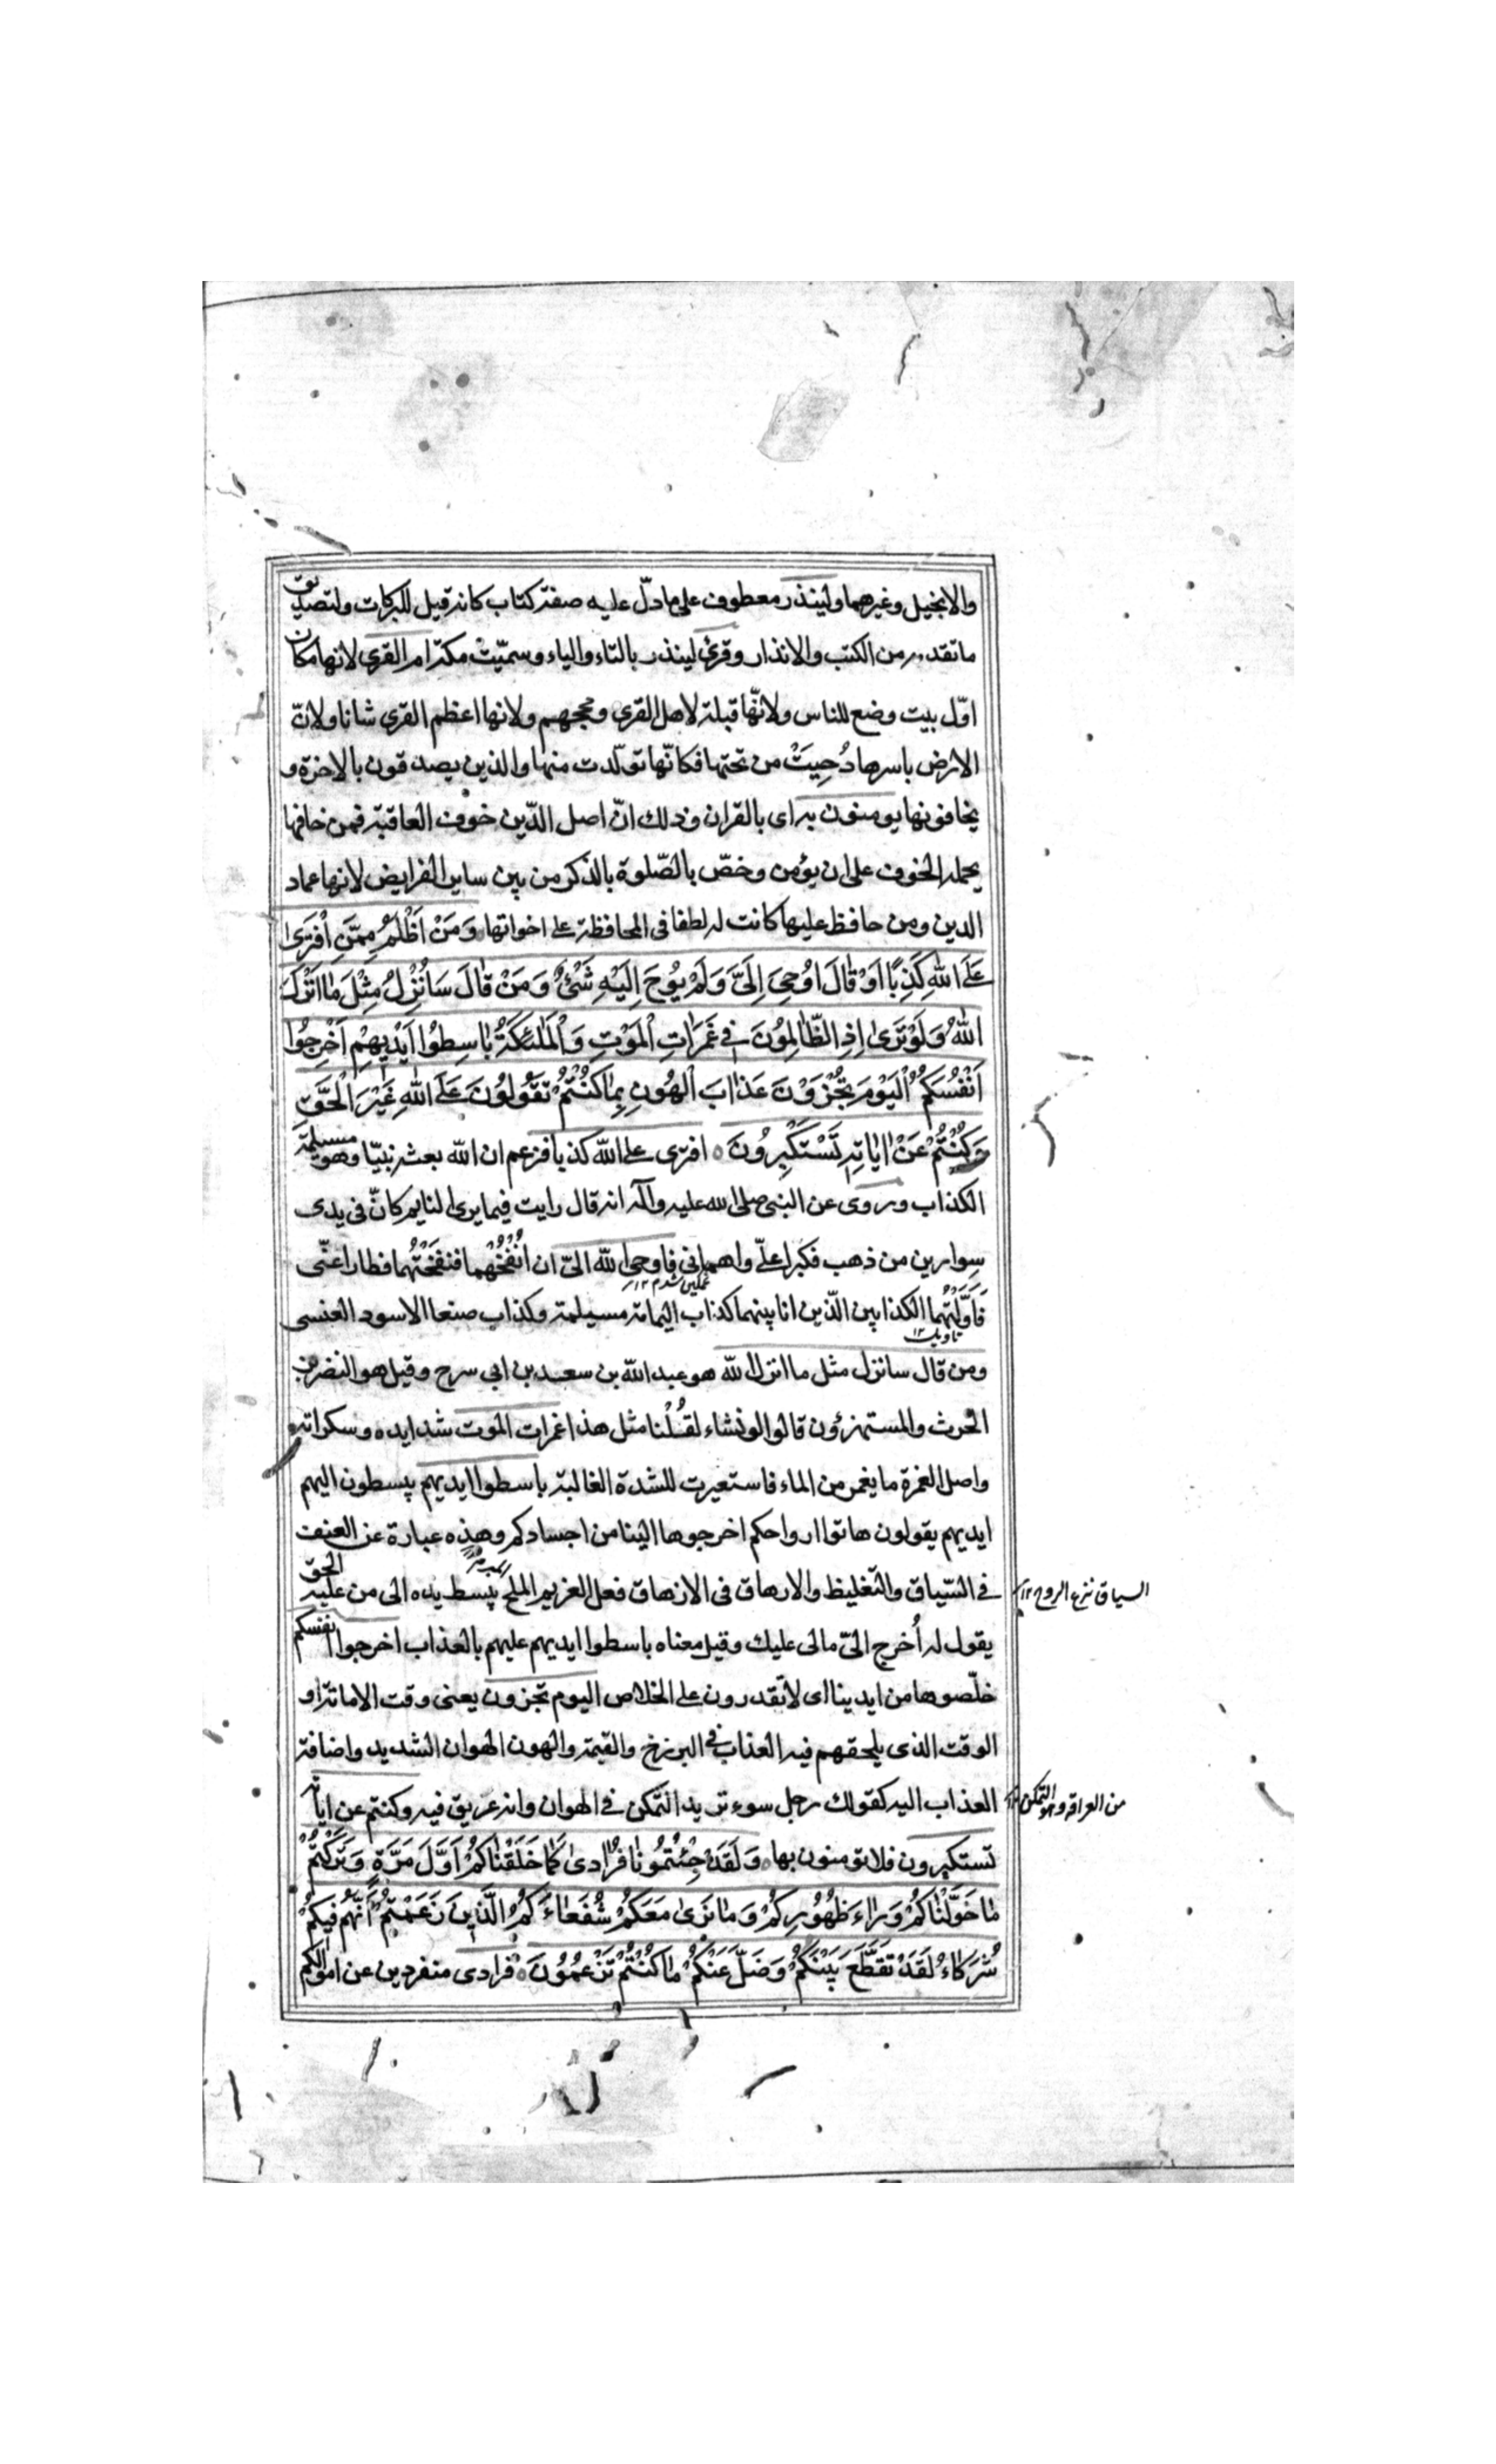 والانجيل وغيرهما ولينذر معطوف على ما دلّ عليه صفة كتاب كانه قيل للبركات ولتصديق
ما تقدمه من الكتب والانذار وقرئ لينذر بالتاء والياء وسميّتْ مكة ام القرى لانها مكان
اوّل بيت وضع للناس ولانّها قبلة لاهل القرى ومحجهم ولانها اعظم القرى شانا ولانّ
الارض باسرها دُحِيَتْ من تحتها فكانّها تولّدت منها والذين يصدقون بالاخرة و
يخافونها يومنون به اى بالقران وذلك انّ اصل الدّين خوف العاقبة فمن خافها
يحمله الخوف على ان يؤمن وخصّ بالصّلوة بالذكر من بين ساير الفرايض لانها عماد
الدين ومن حافظ عليها كانت له لطفا فى المحافظة على اخواتها وَمَنْ اَظْلَمُ مِمَّنِ افْتَرىٰ
عَلَى اللهِ كَذِبًا اَوْ قٰالَ اُوحِىَ اِلَىَّ وَلَمْ يُوحَ اِلَيْهِ شَئٌْ وَمَنْ قٰالَ سَاُنْزِلُ مِثْلَ مٰا اَنْزَلَ
اللهُ وَلَوْ تَرىٰ اِذِ الظّٰالِمُونَ فى غَمَرٰاتِ الْمَوْتِ وَالْمَلٰئِكَةُ بٰاسِطُوا اَيْدِيهِمْ اَخْرِجُوا
اَنْفُسَكُمُ الْيَوْمَ تُجْزَوْنَ عَذٰابَ الْهُونِ بِمٰا كُنْتُمْ تَقُولُونَ عَلَى اللهِ غَيْرَ الْحَقِّ
وَكُنْتُمْ عَنْ اٰيٰاتِهِ تَسْتَكْبِرُونَ ٥ افترى على الله كذبا فزعم ان الله بعثه نبيّا وهو مسيلمة
الكذاب وروى عن النبى صلى الله عليه وآله انه قال رايت فيما يرى النايم كانّ فى يدى
سِوارين من ذهب فكبرا علىّ واهمانى فاوحى الله الىّ ان انْفُخْهُما فنفختُهما فطارا عنّى
غمگین شدم ١٢
فَاوَّلْتُهُما الكذابين الّذين انا بينهما كذاب اليمامة مسيلمة وكذاب صنعا الاسود العنسى
تاويل ١٢
ومن قال سانزل مثل ما انزل الله هو عبد الله بن سعد بن ابى سرح وقيل هو النضر بن
الحرث والمستهزؤن قالوا لو نشاء لقُلْنا مثل هذا غمرات الموت شدايده وسكراته
واصل الغمرة ما يغمر من الماء فاستعيرت للشدة الغالبة باسطوا ايديهم يبسطون اليهم
ايديهم يقولون هاتوا ارواحكم اخرجوها الينا من اجسادكم وهذه عبارة عن العنف
فى السّياق والتّغليظ والارهاق فى الازهاق فعل الغريم الملح يبسط يده الى من عليه الحق
السياق نزع الروح ١٢
يقول له اُخرج الىّ مالى عليك وقيل معناه باسطوا ايديهم عليهم بالعذاب اخرجوا انفسكم
خلّصوها من ايدينا اى لا تقدرون على الخلاص اليوم تجزون يعنى وقت الاماتة او
الوقت الذى يلحقهم فيه العذاب فى البرزخ والقيمة والهون الهوان الشديد واضافة
العذاب اليه كقولك رجل سوء تريد التّمكن فى الهوان وانه عريق فيه وكنتم عن اياته
من العراقة وهو التمكن ١٢
تستكبرون فلا تومنون بها ٥ وَلَقَدْ جِئْتُمُونٰا فُرٰادىٰ كَمٰا خَلَقْنٰاكُمْ اَوَّلَ مَرَّةٍ وَتَرَكْتُمْ
مٰا خَوَّلْنٰاكُمْ وَرٰاءَ ظُهُورِكُمْ وَمٰا نَرىٰ مَعَكُمْ شُفَعٰاءَكُمُ الَّذِينَ زَعَمْتُمْ اَنَّهُمْ فِيكُمْ
شُرَكٰاءُ لَقَدْ تَقَطَّعَ بَيْنَكُمْ وَضَلَّ عَنْكُمْ مٰا كُنْتُمْ تَزْعُمُونَ ٥ فرادى منفردين عن اموالكم